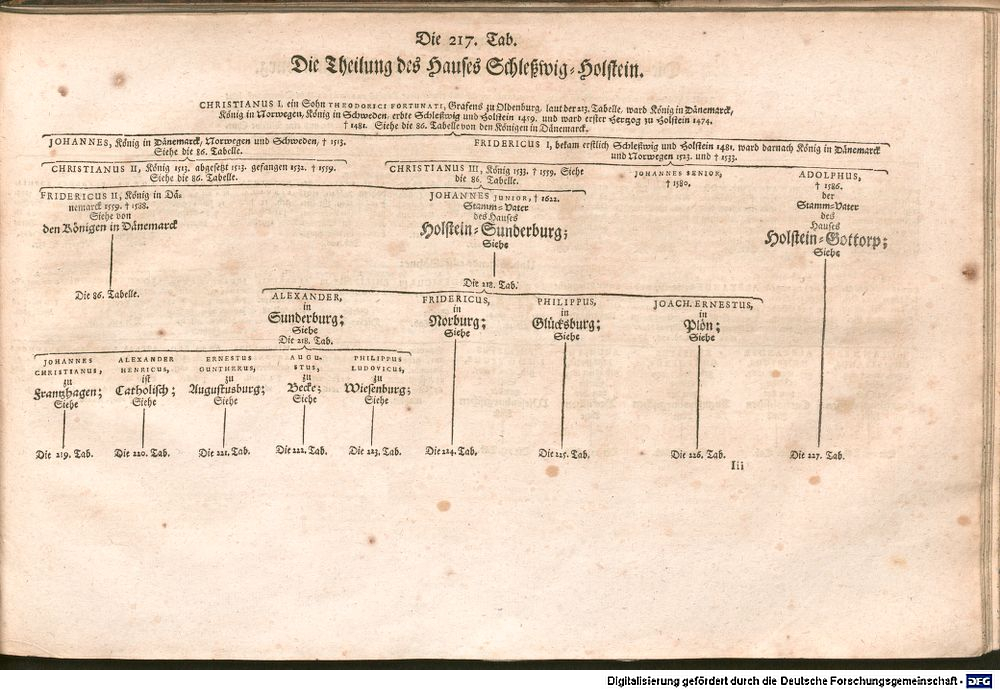 Die 217. Tab.
Die Theilung des Hauses Schleßwig-Holstein.
CHRISTIANUS I. ein Sohn THEODORICI FORTUNATI, Grafens zu Oldenburg, laut der 213. Tabelle, ward König in Dänemarck,
König in Norwegen, König in Schweden, erbte Schleßwig und Holstein 1459. und ward erster Hertzog zu Holstein 1474.
† 1481. Siehe die 86. Tabelle von den Königen in Dänemarck.
JOHANNES, König in Dänemarck, Norwegen und Schweden, † 1513.
Siehe die 86. Tabelle.
FRIDERICUS I, bekam erstlich Schleßwig und Holstein 1481. ward darnach König in Dänemarck
und Norwegen 1523. und † 1533.
CHRISTIANUS II, König 1513. abgesetzt 1523. gefangen 1532. † 1559.
Siehe die 86. Tabelle.
CHRISTIANUS III, König 1533. † 1559. Siehe
die 86. Tabelle.
JOHANNES SENIOR,
† 1580.
ADOLPHUS,
† 1586.
der
Stamm-Vater
des
Hauses
Holstein-Gottorp;
Siehe
FRIDERICUS II, König in Dä-
nemarck 1559. † 1588.
Siehe von
den Königen in Dänemarck
Die 86. Tabelle.
JOHANNES JUNIOR, † 1622.
Stamm-Vater
des Hauses
Holstein-Sunderburg;
Siehe
Die 218. Tab.
ALEXANDER,
in
Sunderburg;
Siehe
Die 218. Tab.
FRIDERICUS,
in
Norburg;
Siehe
PHILIPPUS,
in
Glücksburg;
Siehe
JOACH. ERNESTUS,
in
Plön;
Siehe
JOHANNES
CHRISTIANUS,
zu
Frantzhagen;
Siehe
ALEXANDER
HENRICUS,
ist
Catholisch;
Siehe
ERNESTUS
GUNTHERUS,
zu
Augustusburg;
Siehe
AUGU-
STUS,
zu
Becke;
Siehe
PHILIPPUS
LUDOVICUS,
zu
Wiesenburg;
Siehe
Die 219. Tab.
Die 220. Tab.
Die 221. Tab.
Die 222. Tab.
Die 223. Tab.
Die 224. Tab.
Die 225. Tab.
Die 226. Tab.
Die 227. Tab.
Iii
Digitalisierung gefördert durch die Deutsche Forschungsgemeinschaft - DFG